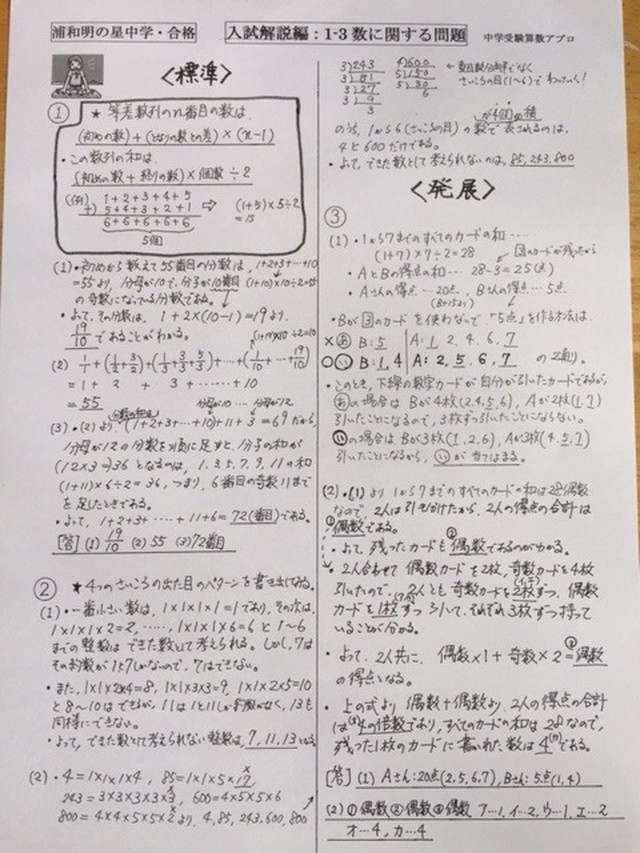 浦和明の星中学・合格
入試解説編：1-3 数に関する問題
中学受験算数アプロ
〈標準〉
①
★等差数列のn番目の数は、
(初めの数)+(となりの数との差)×(n-1)
・この数列の和は、
(初めの数+終りの数)×個数÷2
(例) 1+2+3+4+5
+) 5+4+3+2+1
6+6+6+6+6
5個
⇒ (1+5)×5÷2
=15
(1)・初めから数えて55番目の分数は、1+2+3+…+10
=55より、分母が10で、分子が10番目 (1+10)×10÷2=55
の奇数になっている分数である。
・よって、その分数は、1+2×(10-1)=19より、
19/10 であることがわかる。
(1+10)×10÷2=10
(2) 1/1+(1/2+3/2)+(1/3+3/3+5/3)+…+(1/10+…+19/10)
=1 + 2 + 3 +……+10
=55
分母が10… 分母が12
分数の和は
(3)・(2)より、(1+2+3+…+10)+11+3=69だから、
分母が12の分数を順に足すと、分子の和が
(12×3=)36となるのは、1.3.5.7.9.11の和
(1+11)×6÷2=36、つまり、6番目の奇数11まで
を足したときである。
・よって、1+2+3+……+11+6=72(番目)である。
[答] (1) 19/10 (2) 55 (3) 72番目
②
★4つのさいころの出た目のパターンを書き出してみる。
(1)・一番小さい数は、1×1×1×1=1であり、その次は、
1×1×1×2=2,……,1×1×1×6=6と1〜6
までの整数はできた数として考えられる。しかし、7は
その約数が1と7しかないので、7はできない。
・また、1×1×2×4=8, 1×1×3×3=9, 1×1×2×5=10
と8〜10はできるが、11は1と11しか約数がなく、13も
同様にできない。
・よって、できた数として考えられない整数は、7,11,13となる
(2)・4=1×1×1×4, 85=1×1×5×17,
243=3×3×3×3×3, 600=4×5×5×6
800=4×4×5×5×2より、4,85,243,600,800
3)243 4)600
3)81 5)150
3)27 5)30
3)9 6
3
さいころの目(1〜6)でわっていく!
が4個の積
のうち、1から6(さいころの目)の数で表されるのは、
4と600だけである。
・よって、できた数として考えられないのは、85,243,800
〈発展〉
③
(1)・1から7までのすべてのカードの和……
(1+7)×7÷2=28
③のカードが残ったから
・AとBの得点の和… 28-3=25(点)
・Aさんの得点…20点、Bさんの得点…5点
・Bが③のカードを使わないで、「5点」を作る方法は、
×あ B:5 A:1,2,4,6,7
○い B:1,4 A:2,5,6,7 の2通り。
・このとき、下線の数字カードが自分が引いたカードであるが、
あの場合はBが4枚(2,4,5,6)、Aが2枚(1,7)
引いたことになるので、3枚ずつ引いたことにならない。
いの場合はBが3枚(1,2,6)、Aが3枚(4,5,7)
引いたことになるから、いが当てはまる。
(2)・(1)より1から7までのすべてのカードの和は28(偶数)
なので、2人は引き分けたから、2人の得点の合計は
①偶数である。
・よって、残ったカードも②偶数であるのがわかる。
・2人合わせて偶数カードを2枚、奇数カードを4枚
引いたので、2人とも奇数カードを2枚ずつ、偶数
カードを1枚ずつ引いて、それぞれ3枚ずつ持って
いることが分かる。
・よって、2人共に、偶数×1+奇数×2=③偶数
の得点となる。
・上の式より偶数+偶数より、2人の得点の合計
は4の倍数であり、すべてのカードの和は28なので、
残った1枚のカードに書かれた数は4である。
[答] (1) Aさん:20点(2,5,6,7), Bさん:5点(1,4)
(2) ①偶数 ②偶数 ③偶数 ア…1, イ…2, ウ…1, エ…2
オ…4, カ…4